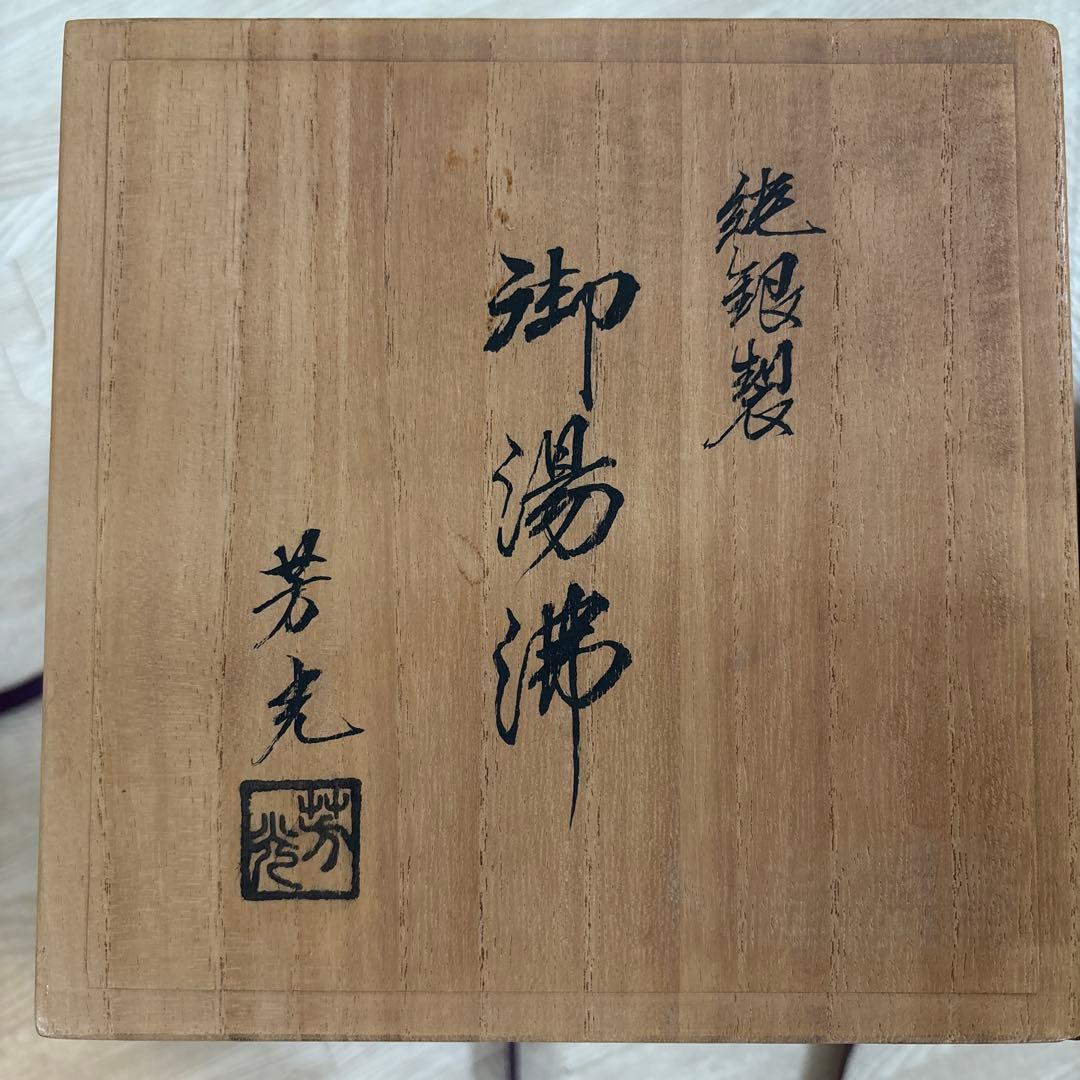 純銀製
御湯沸
芳光
芳光